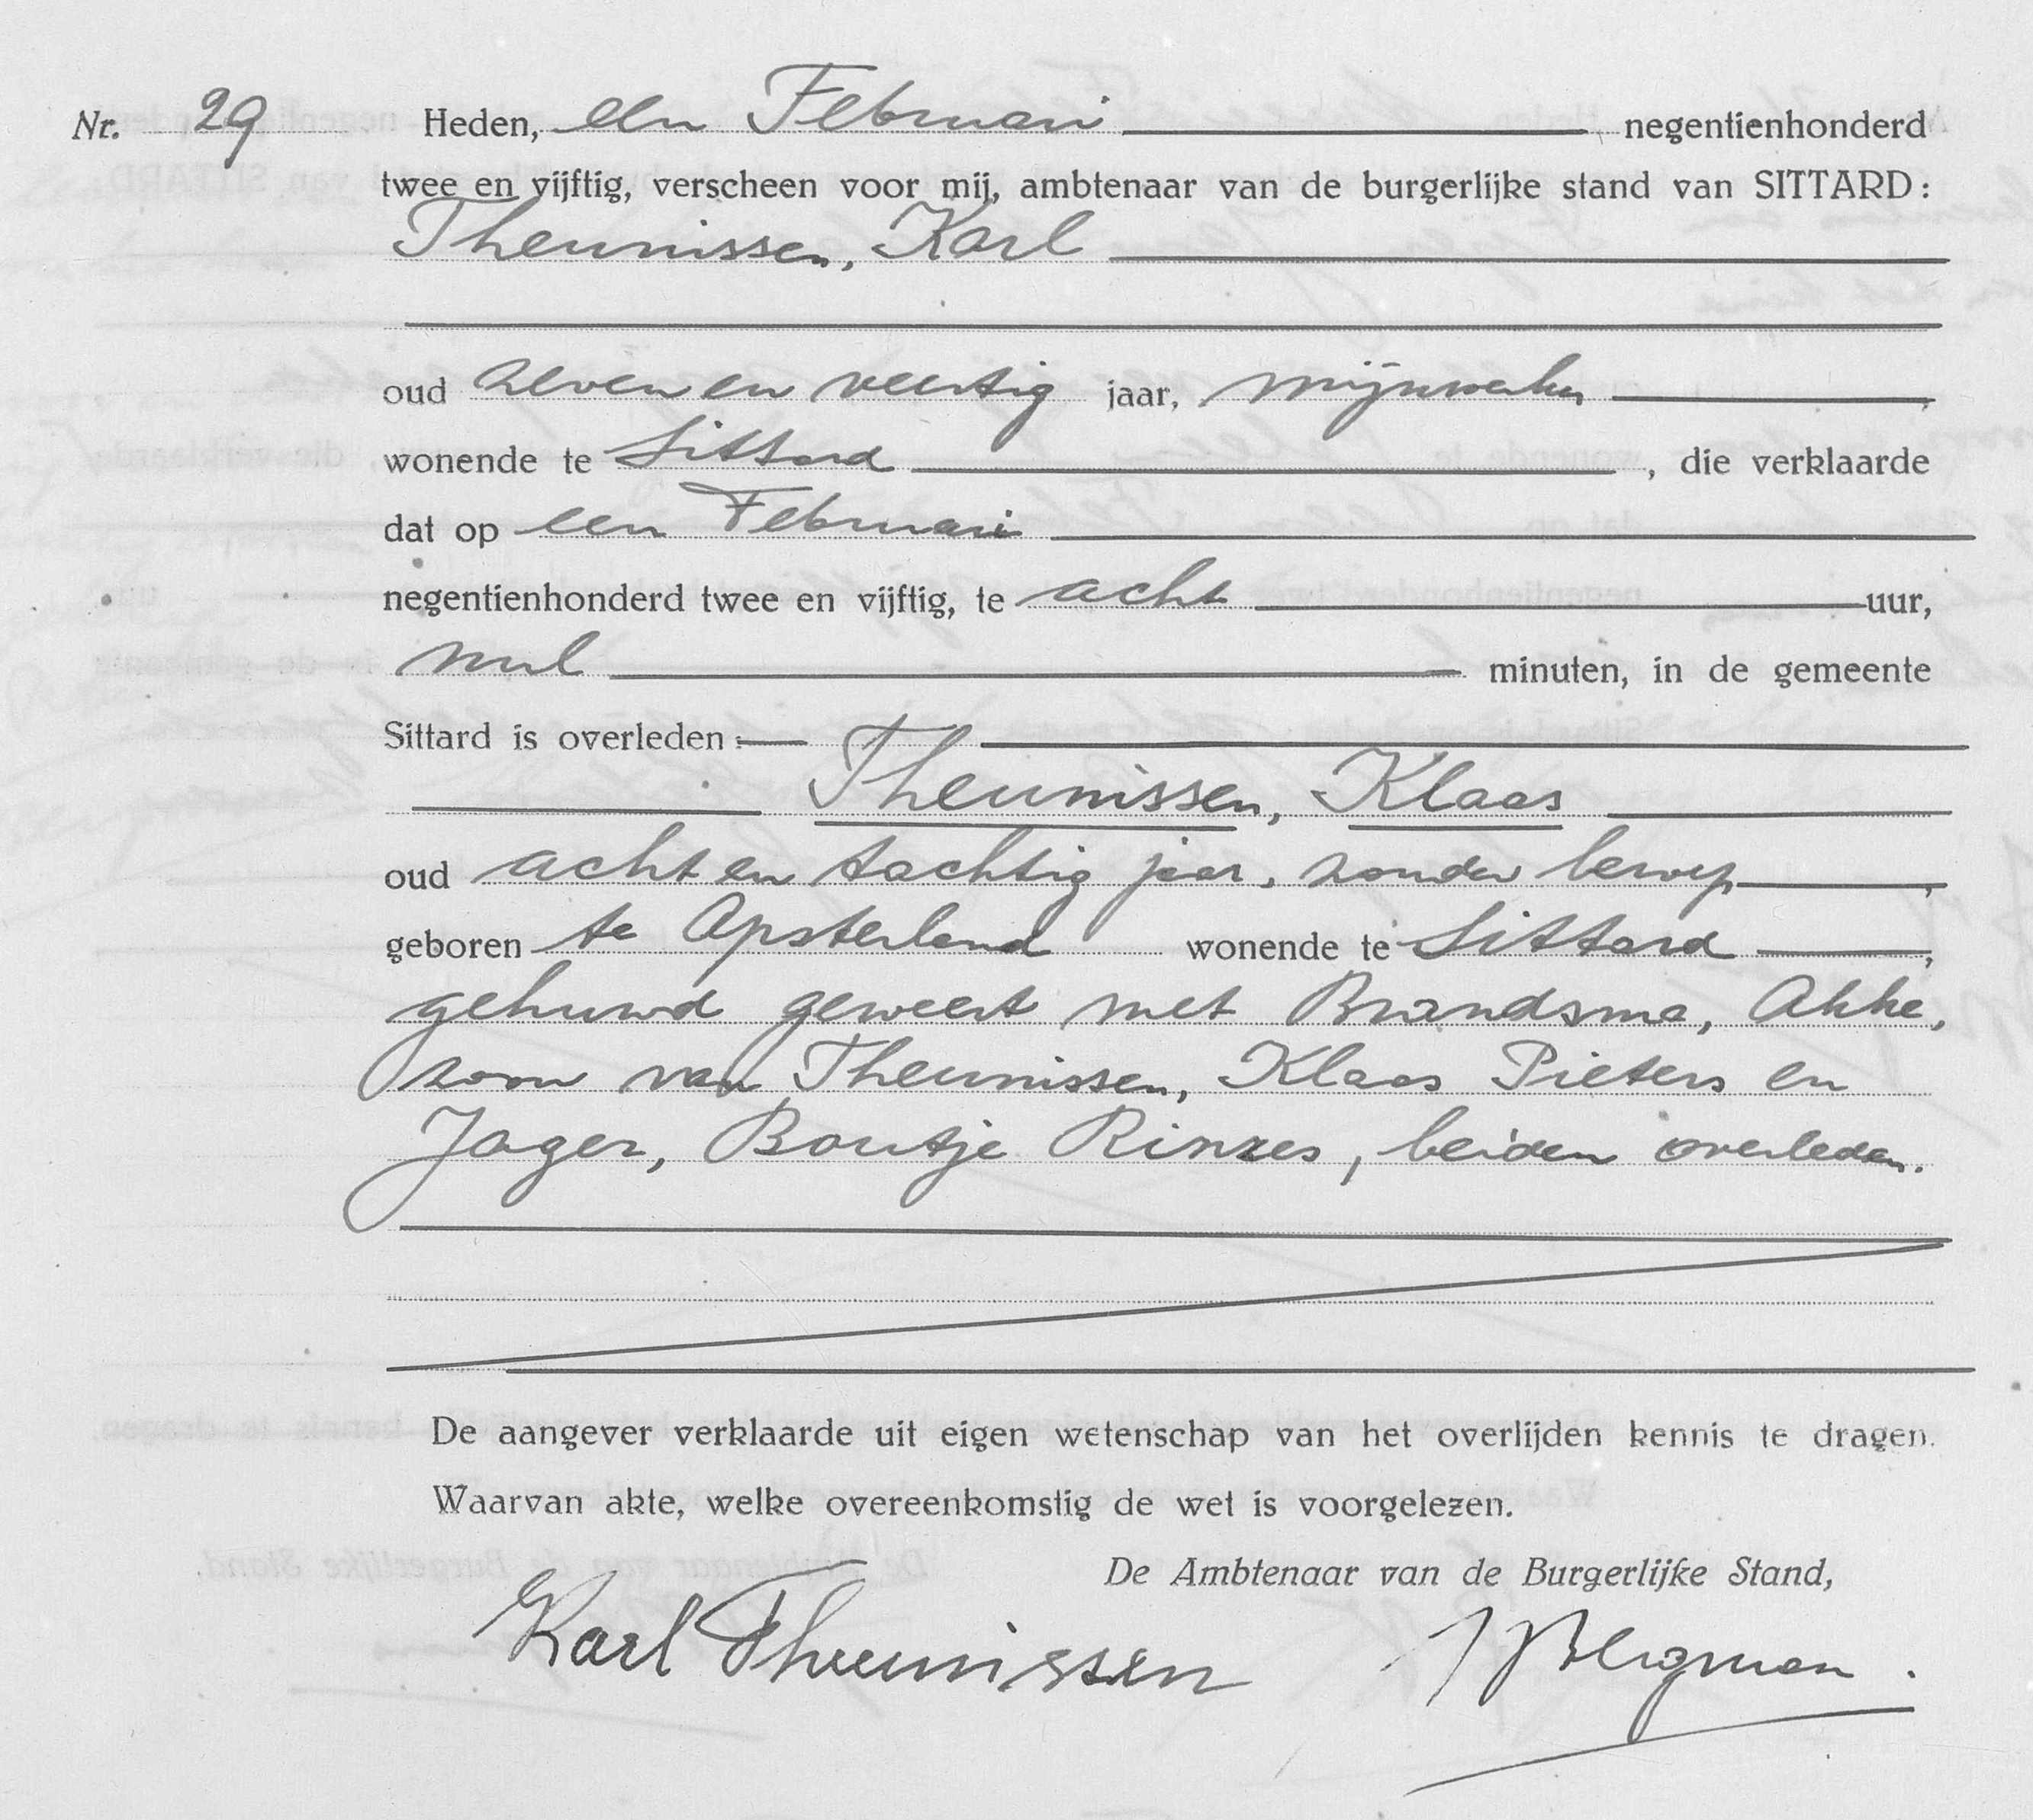 Nr. 29 Heden, een Februari negentienhonderd
twee en vijftig, verscheen voor mij, ambtenaar van de burgerlijke stand van SITTARD:
Theunissen, Karl
oud zeven en veertig jaar, mijnwerker,
wonende te Sittard, die verklaarde
dat op een Februari
negentienhonderd twee en vijftig, te acht uur,
nul minuten, in de gemeente
Sittard is overleden:
Theunissen, Klaas
oud acht en tachtig jaar, zonder beroep,
geboren te Opsterland wonende te Sittard,
gehuwd geweest met Brandsma, Akke,
zoon van Theunissen, Klaas Pieters en
Jager, Boutje Rinzes, beiden overleden.
De aangever verklaarde uit eigen wetenschap van het overlijden kennis te dragen.
Waarvan akte, welke overeenkomstig de wet is voorgelezen.
De Ambtenaar van de Burgerlijke Stand,
Karl Theunissen Bergman